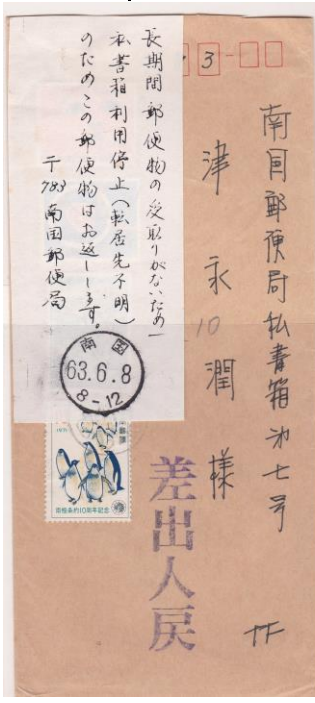 3
南国郵便局私書箱㐧七号
津永潤様
10
長期間郵便物の受取りがないため
私書箱利用停止(転居先不明)
のためこの郵便物はお返しします。
〒783 南国郵便局
南国
63.6.8
8-12
1971
南極条約10周年記念
差出人戻